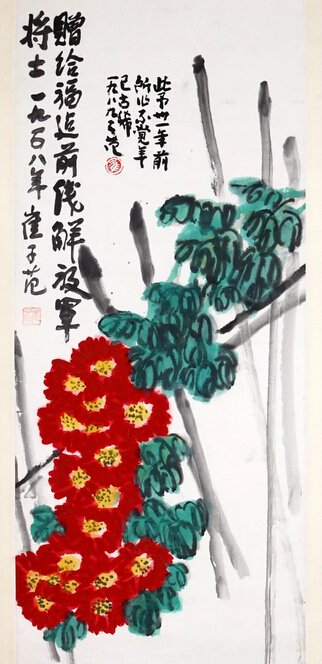 贈给福迠前线解放軍
将士一九五八年崔子范
此帋卅一年前
所作不覚年
已古稀
一九八九子范